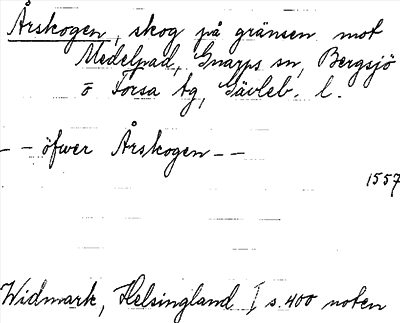 Årskogen, skog på gränsen mot
Medelpad, Gnarps sn, Bergsjö
o Forsa tg, Gävleb. l.
- - öfwer Årskogen - -
1557
Widmark, Helsingland I s. 400 noten